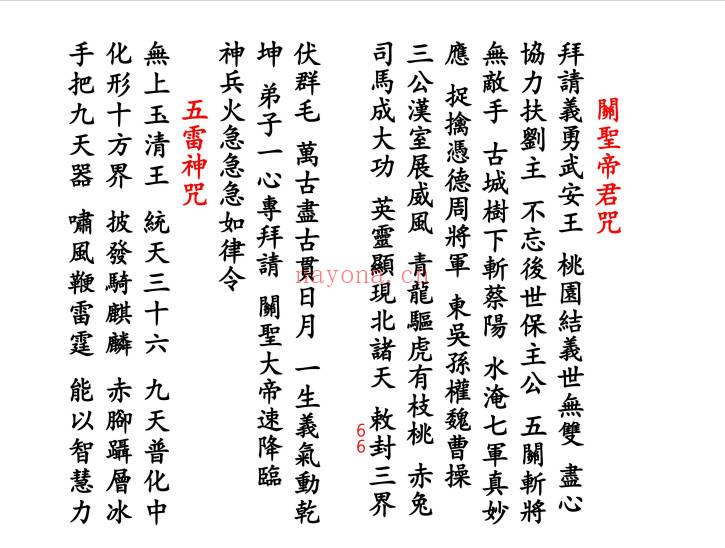 關聖帝君咒
拜請義勇武安王 桃園結義世無雙 盡心
協力扶劉主 不忘後世保主公 五關斬將
無敵手 古城樹下斬蔡陽 水淹七軍真妙
應 捉擒憑德周將軍 東吳孫權魏曹操
三公漢室展威風 青龍驅虎有枝桃 赤兔
司馬成大功 英靈顯現北諸天 敕封三界
66
伏群毛 萬古盡古貫日月 一生義氣動乾
坤 弟子一心專拜請 關聖大帝速降臨
神兵火急急急如律令
五雷神咒
無上玉清王 統天三十六 九天普化中
化形十方界 披發騎麒麟 赤腳躡層冰
手把九天器 嘯風鞭雷霆 能以智慧力
nayona.cn